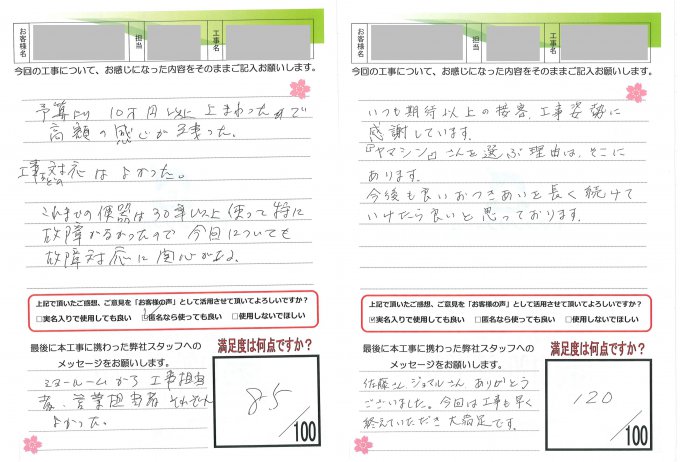 お客様名
担当
工事名
今回の工事について、お感じになった内容をそのままご記入お願いします。
予算より 10万円以上 上まわったので
高額の感じが残った。
工事などの対応はよかった。
これまでの便器は30年以上使って特に
故障がなかったので 今回についても
故障対応に関心がある。
上記で頂いたご感想、ご意見を「お客様の声」として活用させて頂いてよろしいですか？
□実名入りで使用しても良い ☑匿名なら使っても良い □使用しないでほしい
最後に本工事に携わった弊社スタッフへの
メッセージをお願いします。
ショールームから 工事担当
者、営業担当者 それぞれ
よかった。
満足度は何点ですか？
85
/100
お客様名
担当
工事名
今回の工事について、お感じになった内容をそのままご記入お願いします。
いつも期待以上の接客、工事姿勢に
感謝しています。
『ヤマシン』さんを選ぶ理由は、そこに
あります。
今後も良いおつきあいを長く続けて
いけたら良いと思っております。
上記で頂いたご感想、ご意見を「お客様の声」として活用させて頂いてよろしいですか？
☑実名入りで使用しても良い □匿名なら使っても良い □使用しないでほしい
最後に本工事に携わった弊社スタッフへの
メッセージをお願いします。
佐藤さん ジョマルさん ありがとう
ございました。今回は工事も早く
終えていただき 大満足です。
満足度は何点ですか？
120
/100